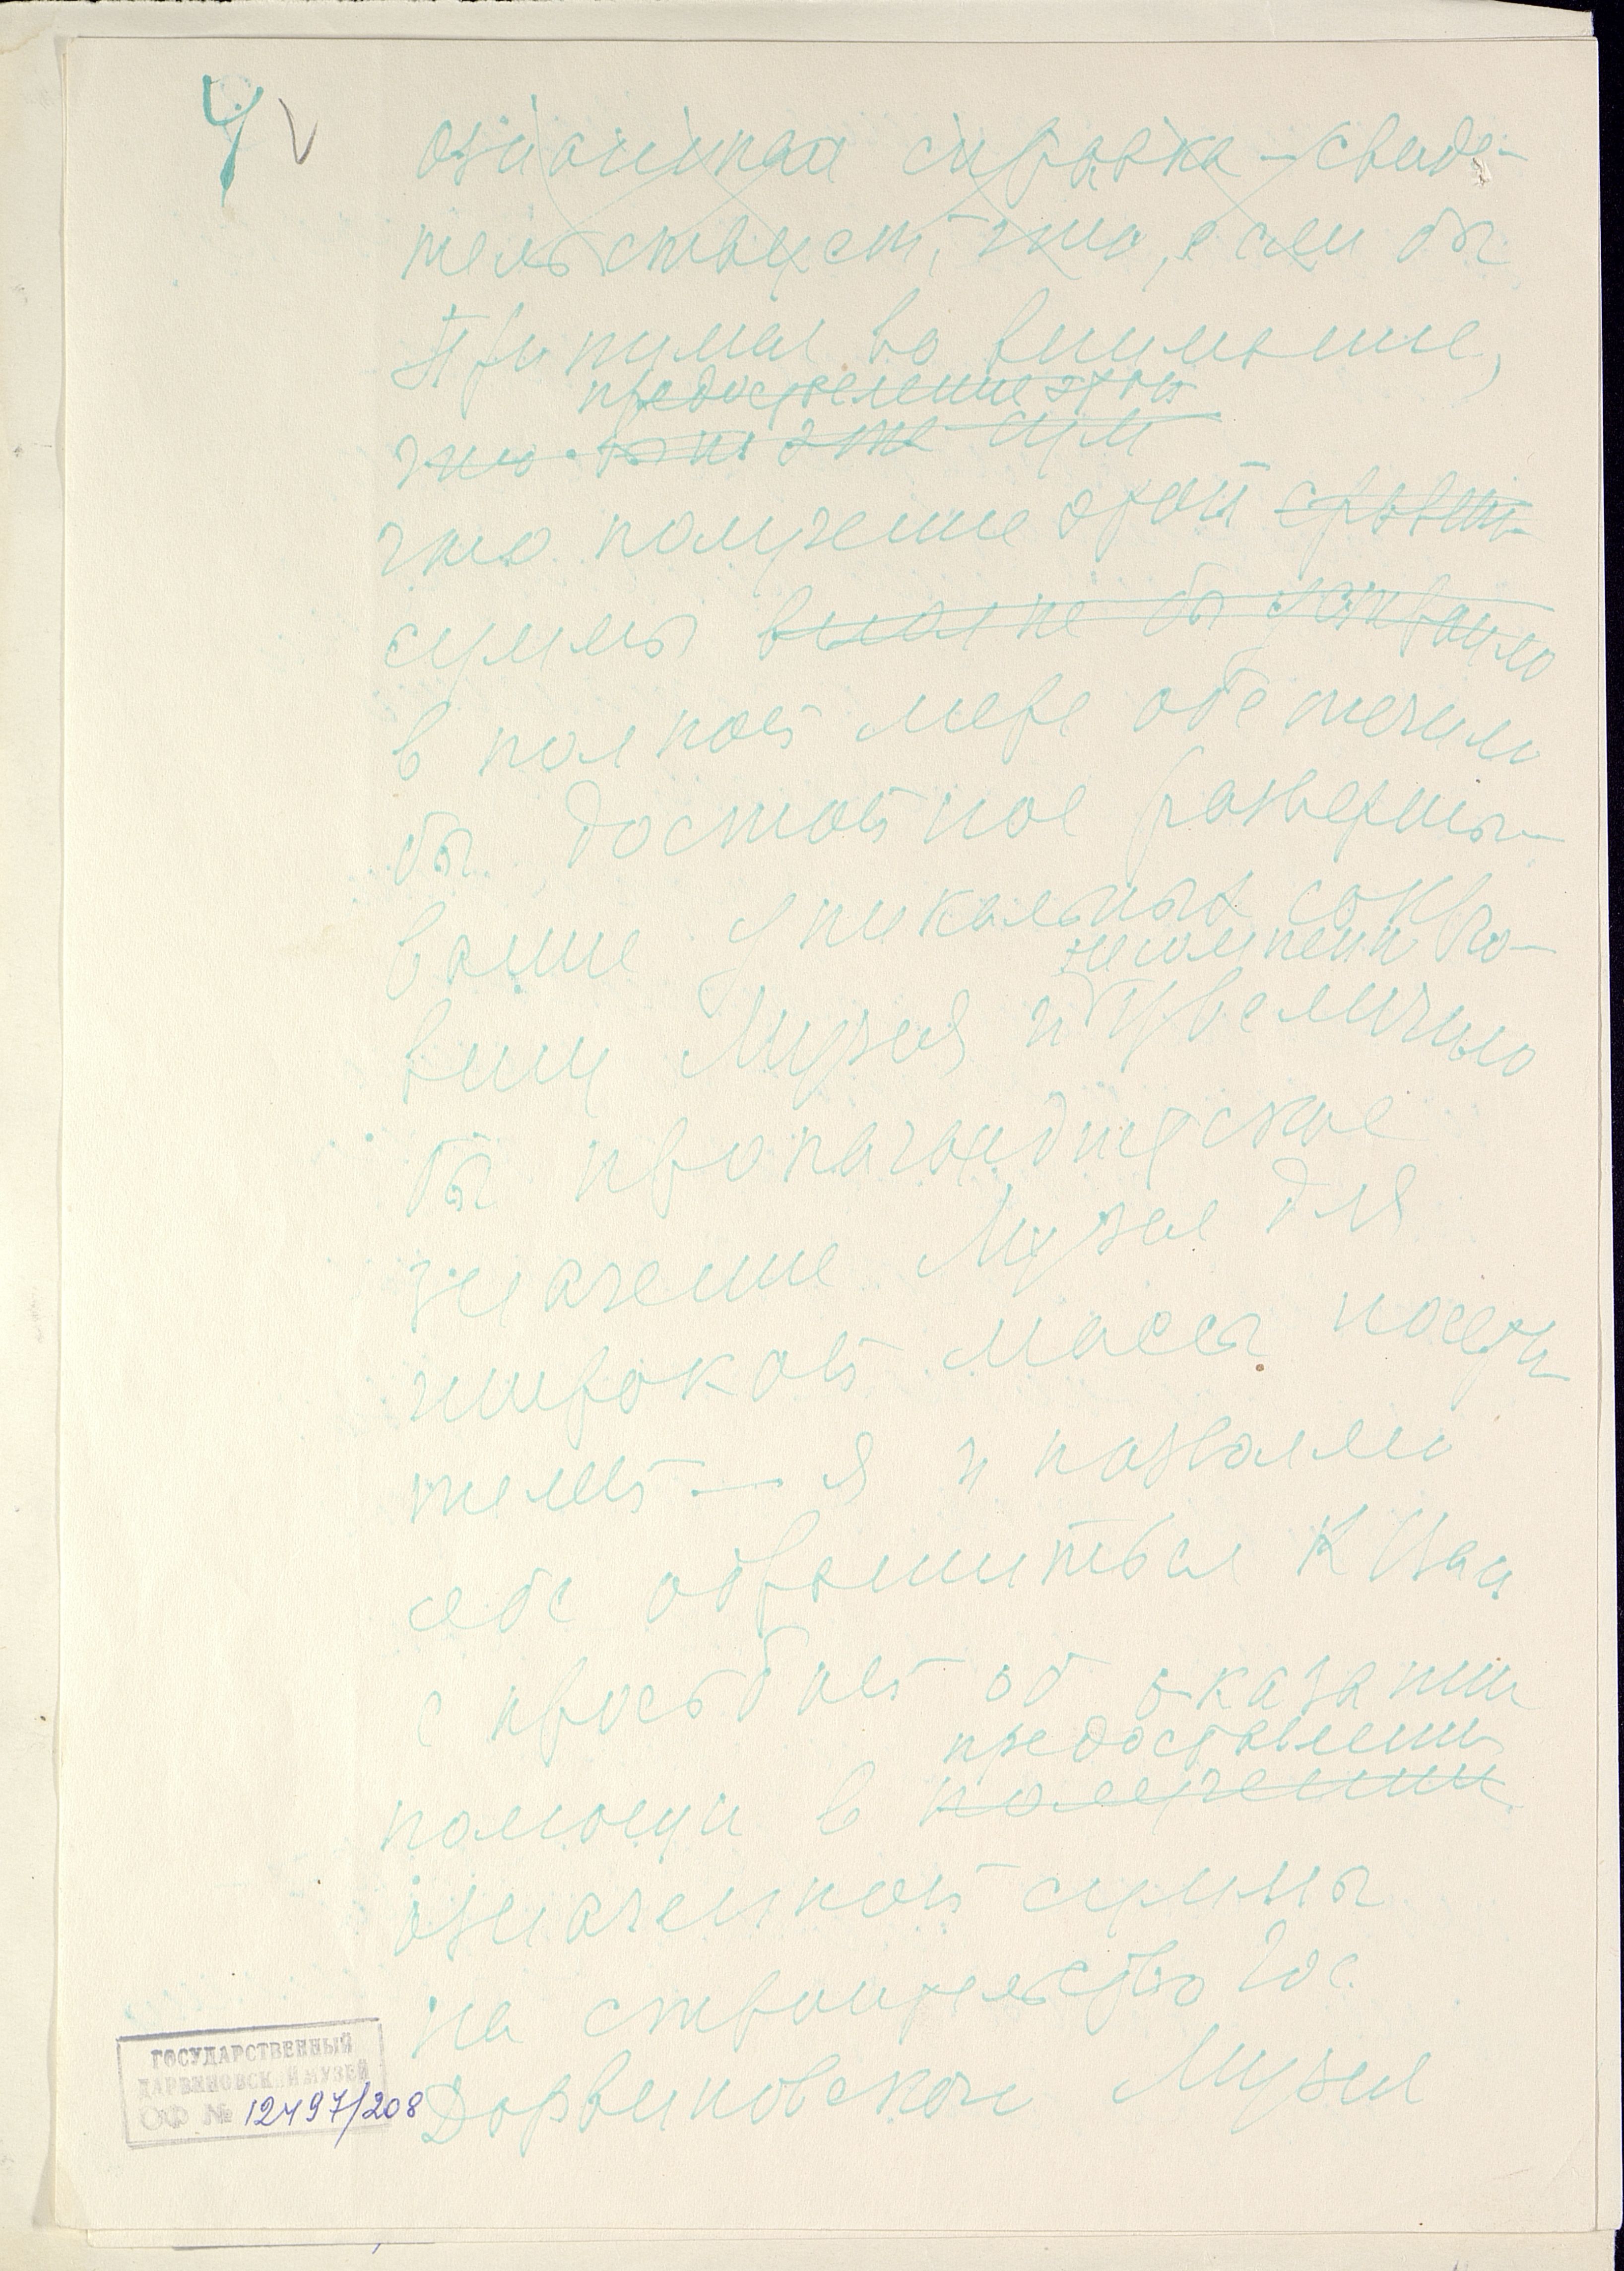 4 V
означенная справка – свиде-
тельствует, что, если бы
Принимая во внимание,
предоставление этой
что эти сум
что получение этой
суммы вполне бы устроило
в полной мере обеспечило
бы достойное развёрты-
вание уникальных сокро-
несомненно
вищ Музея и увеличило
бы пропагандистское
значение Музея для
широкой массы посети-
телей – я и позволяю
себе обратиться к Вам
с просьбой об оказании
предоставлении
помощи в получении
означенной суммы
на строительство Гос.
Дарвиновского Музея
ГОСУДАРСТВЕННЫЙ
ДАРВИНОВСКИЙ МУЗЕЙ
ОФ № 12497/208